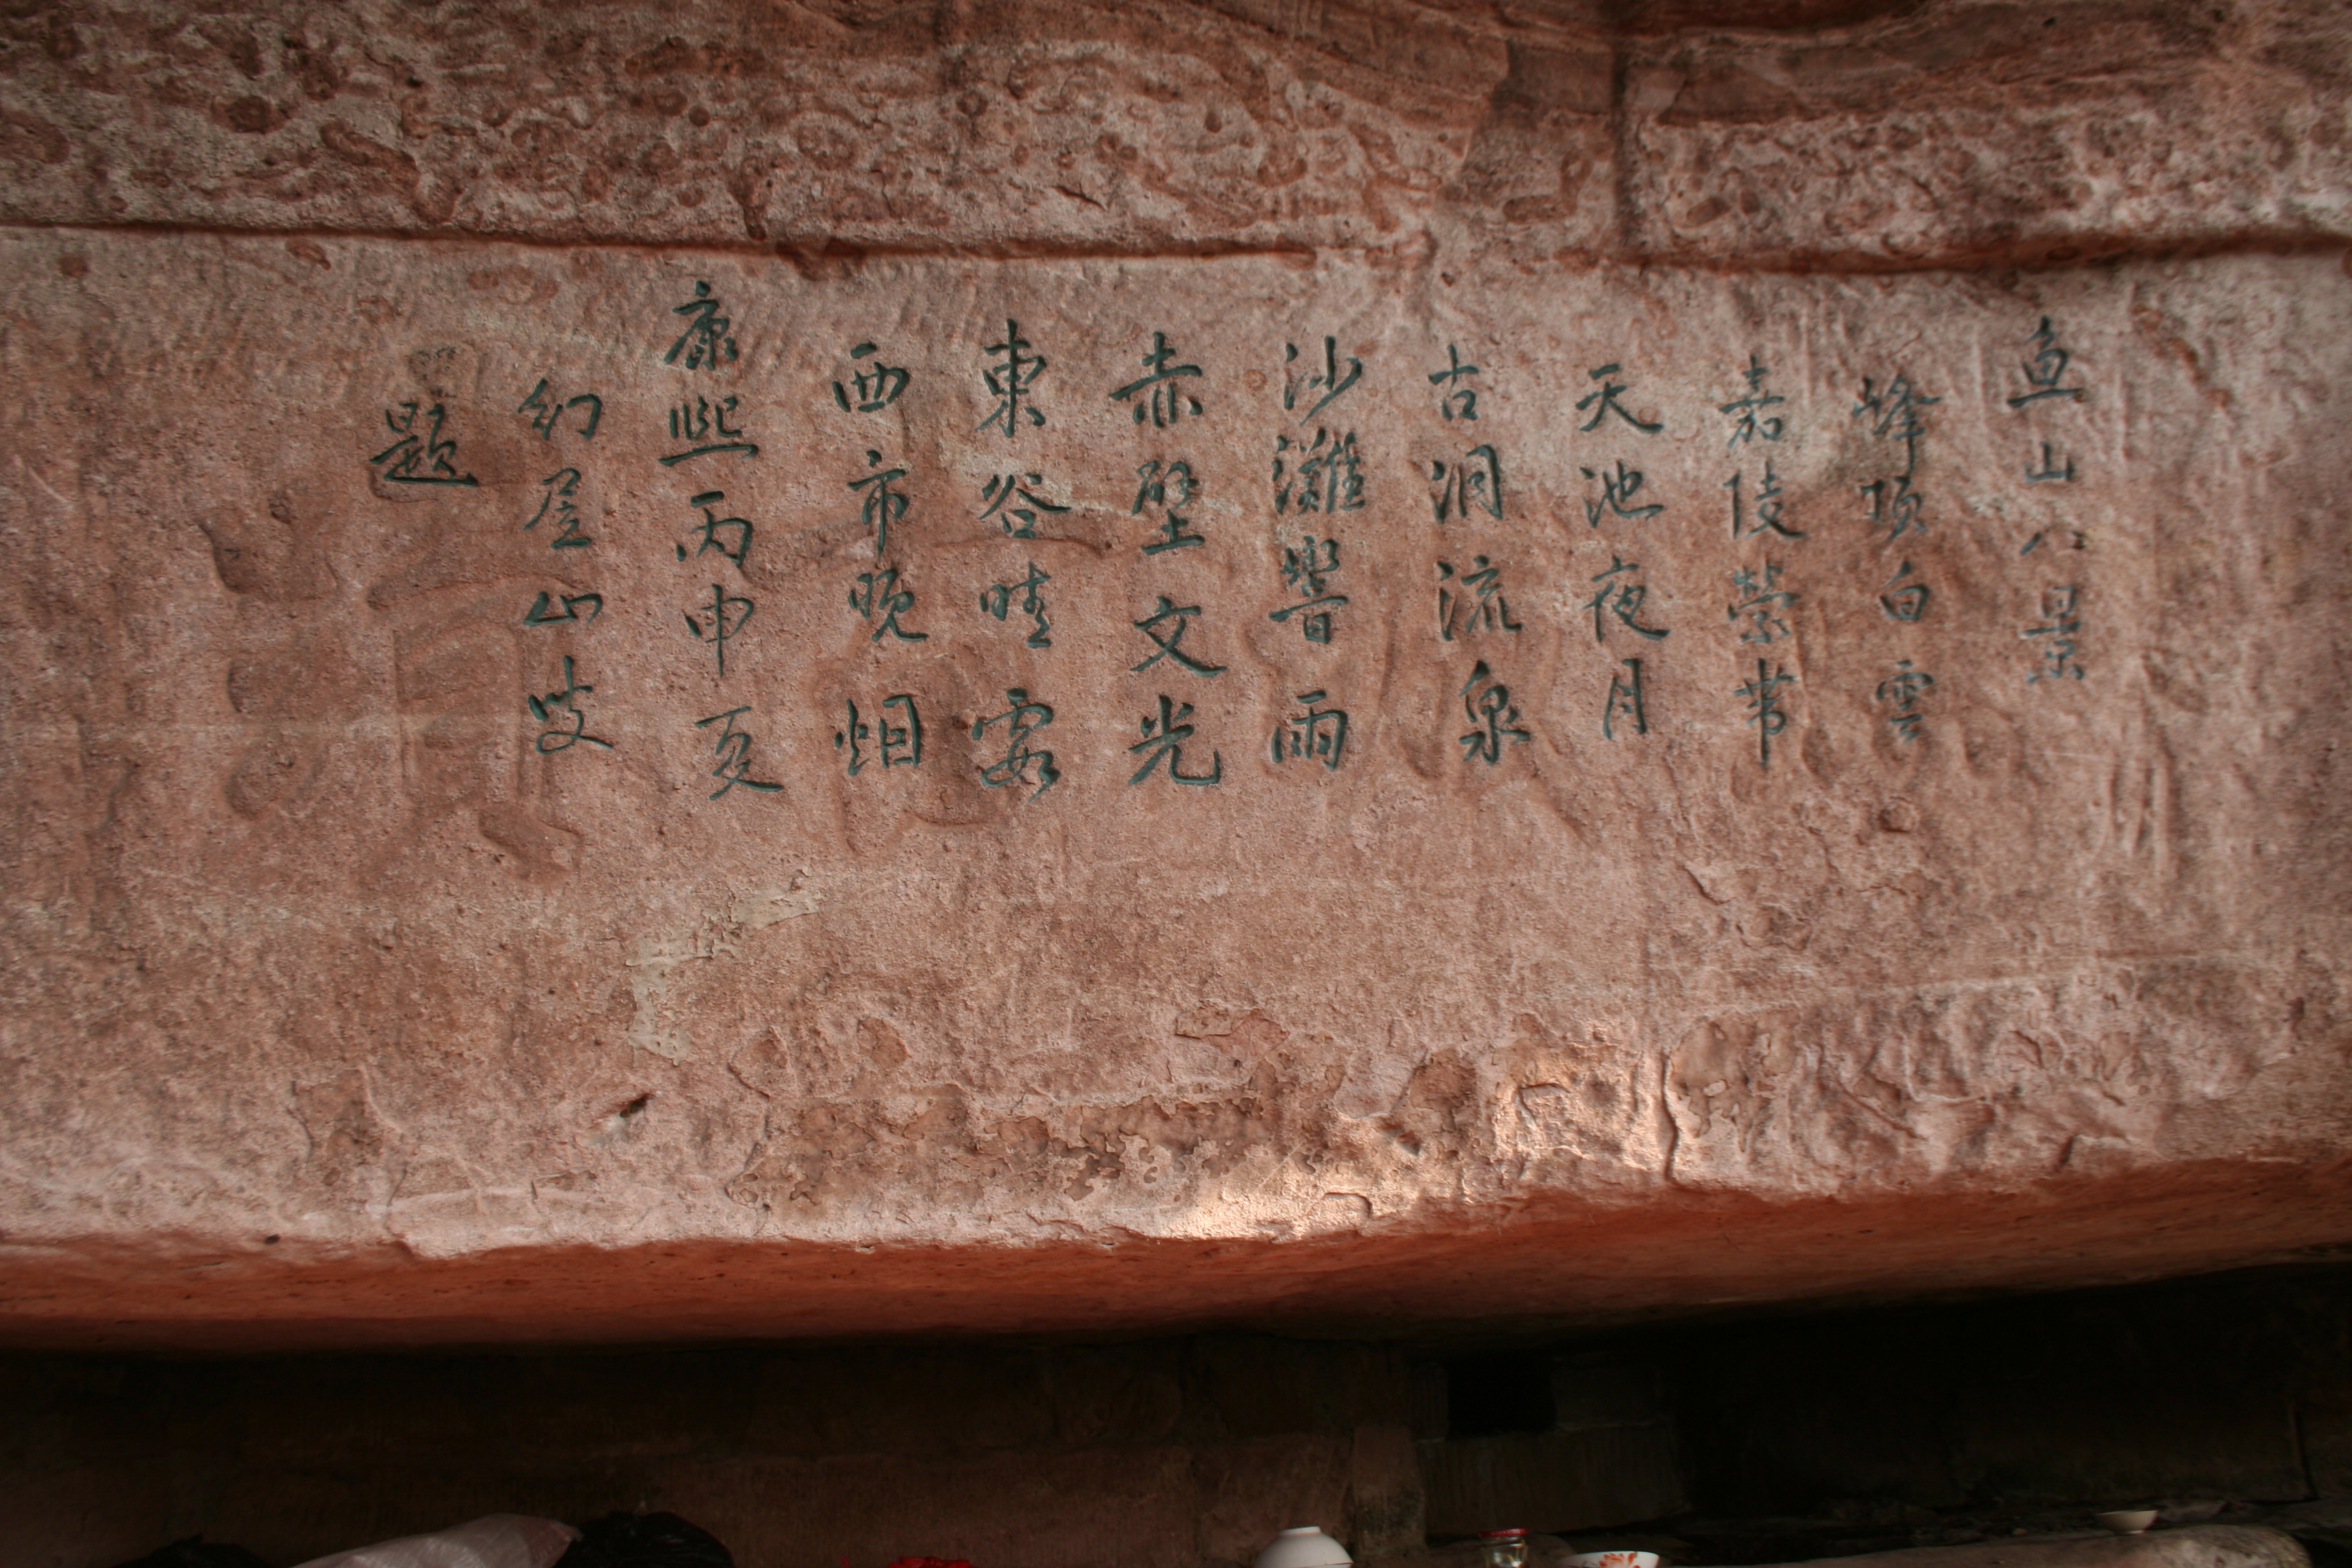 鱼山八景
峰顶白雲
嘉陵縈帶
天池夜月
古洞流泉
沙灘響雨
赤壁文光
東谷晴霞
西市晚烟
康熙丙申夏
幻崖山叟
題